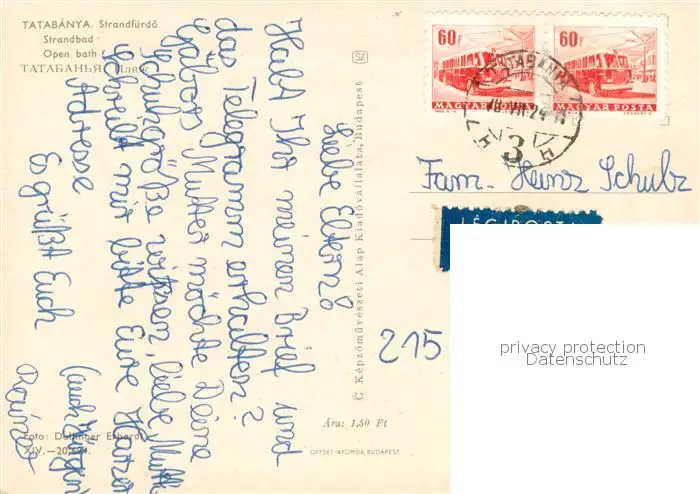 TATABÁNYA. Strandfürdő
Strandbad
Open bath
ТАТАБАНЬЯ Пляж
SZ
60f
60f
MAGYAR POSTA
MAGYAR POSTA
TATABÁNYA
3
Fam. Heinz Schulz
LÉGIPOSTA
Liebe Eltern!
Habt Ihr meinen Brief und
das Telegramm erhalten?
Gábors Mutter möchte Deine
Schuhgröße wissen, liebe Mutti.
Schreibt mir bitte Eure
Adresse
Es grüßt Euch
(auch Jürgen)
© Képzőművészeti Alap Kiadóvállalata, Budapest
215
privacy protection
Datenschutz
Ára: 1,50 Ft
Foto: Erhardt
XIV.—20/691.
OFFSET-NYOMDA, BUDAPEST